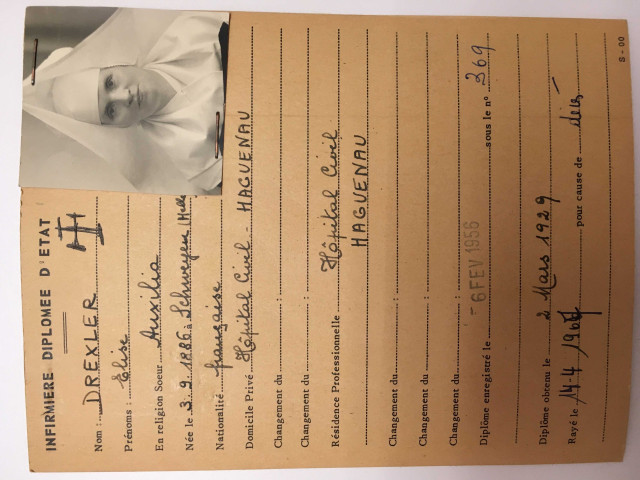 INFIRMIERE DIPLOMEE D'ETAT
Nom : DREXLER
Prénoms : Elise
En religion Soeur Auxilia
Née le 3.9.1886 à Schweyen (Mlle
Nationalité française
Domicile Privé Hôpital Civil - HAGUENAU
Changement du :
Changement du :
Résidence Professionnelle Hôpital Civil
HAGUENAU
Changement du :
Changement du :
Changement du :
Diplôme enregistré le - 6 FEV 1956 sous le n° 369
Diplôme obtenu le 2 Mars 1929
Rayé le 14-4 1967 pour cause de
S - 00